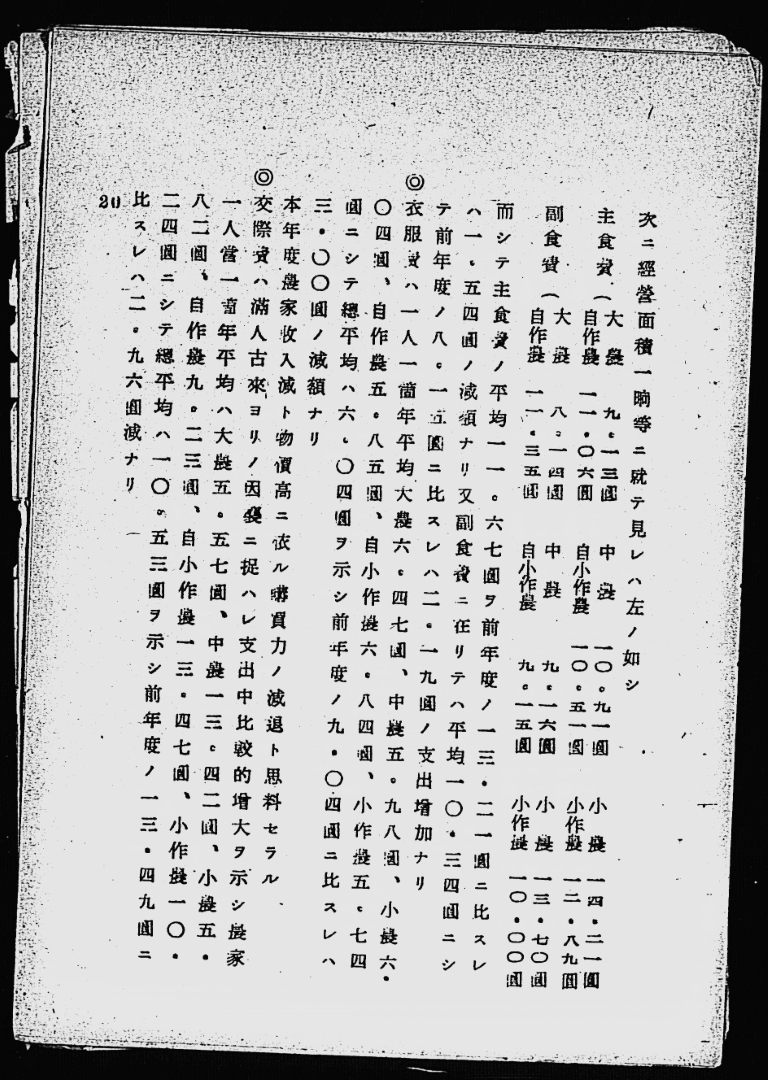 次ニ經營面積一晌等ニ就テ見レハ左ノ如シ
主食費（大農　九・一三圓　中農　一〇・九一圓　小農　一四・二一圓
自作農　一一・〇六圓　自小作農　一〇・五一圓　小作農　一二・八九圓
副食費（大農　八・一四圓　中農　九・一六圓　小農　一三・七〇圓
自作農　一一・三五圓　自小作農　九・一五圓　小作農　一〇・〇〇圓
而シテ主食費ノ平均一一。六七圓ヲ前年度ノ一三・二一圓ニ比スレ
ハ一・五四圓ノ減額ナリ又副食費ニ在リテハ平均一〇・三四圓ニシ
テ前年度ノ八。一五圓ニ比スレハ二・一九圓ノ支出增加ナリ
◎衣服費ハ一人一箇年平均大農六。四七圓、中農五。九八圓、小農六・
〇四圓、自作農五。八五圓、自小作農六・八四圓、小作農五。七四
圓ニシテ總平均ハ六。〇四圓ヲ示シ前年度ノ九・〇四圓ニ比スレハ
三・〇〇圓ノ減額ナリ
本年度農家收入減ト物價高ニ依ル購買力ノ減退ト思料セラル
◎交際費ハ滿人古來ヨリノ因襲ニ捉ハレ支出中比較的增大ヲ示シ農家
一人當一箇年平均ハ大農五。五七圓、中農一三。四二圓、小農五・
八二圓、自作農九。二三圓、自小作農一三・四七圓、小作農一〇・
二四圓ニシテ總平均ハ一〇。五三圓ヲ示シ前年度ノ一三・四九圓ニ
比スレハ二。九六圓減ナリ
20